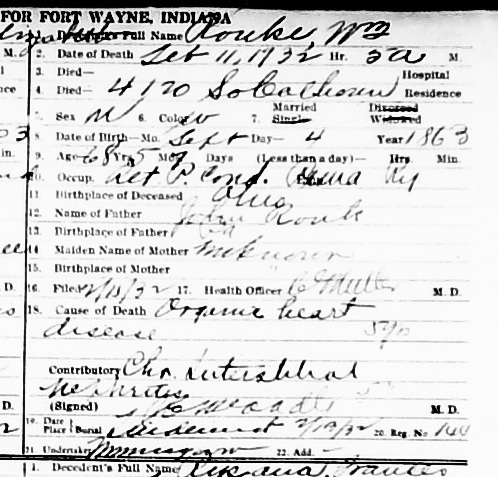 FOR FORT WAYNE, INDIANA
1. Decedent's Full Name Rourke, Wm
M. 2. Date of Death Feb 11, 1932 Hr. 5 a M.
3. Died— Hospital
4. Died— 4120 So Calhoun Residence
5. Sex M 6. Color W 7. Married Single Divorced Widowed
8. Date of Birth—Mo. Sept Day— 4 Year 1863
in. 9. Age 68 Yrs. 5 Mos. Days (Less than a day)— Hrs. Min.
10. Occup. Ret P. Cond. Penna Ry
11 Birthplace of Deceased Ohio
12. Name of Father John
13. Birthplace of Father
14. Maiden Name of Mother Unknown
15. Birthplace of Mother "
D. 16. Filed 2/13/32 17. Health Officer M. D.
18. Cause of Death Organic heart
disease 5 yrs
Contributory Chr. Interstitial
Nephritis
D. (Signed) M. D.
19. Date Place Burial 20. Reg. No.
21. Undertaker 22. Add. —
1. Decedent's Full Name Frances